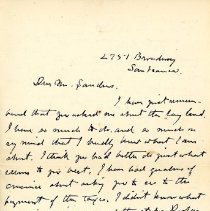 2751 Broadway
San Francisco
Dear Mr. Sanders,
I have just remem-
bered that you asked me about the hay land.
I have so much to do, and so much on
my mind that I hardly know what I am
about. I think you had better do just what
seems to you best. I have had
about asking you to see to the
payment of the taxes. I didn't know what